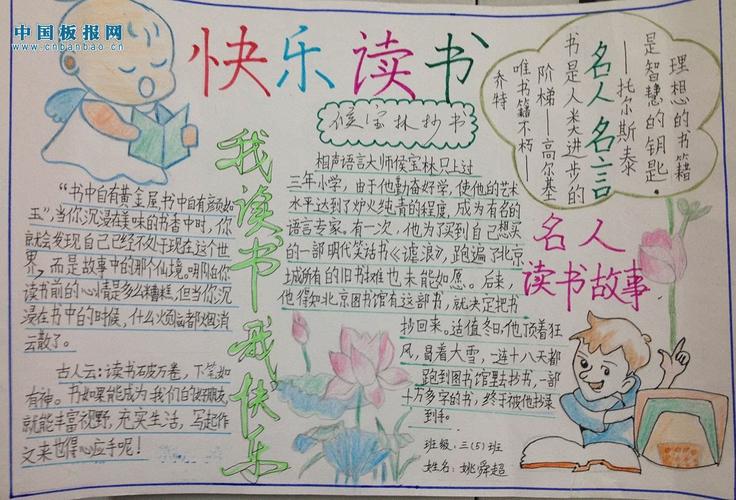 中国板报网
www.cnbanbao.cn
快乐读书
侯宝林抄书
名人名言
理想的书籍
是智慧的钥匙.
——托尔斯泰
书是人类进步的
阶梯——高尔基
唯书籍不朽——
乔特
我读书我快乐
“书中自有黄金屋书中自有颜如
玉”,当你沉浸在美味的书香中时,你
就会发现自己已经不处于现在这个世
界,而是故事中的那个仙境。哪怕你
读书前的心情是多么糟糕,但当你沉
浸在书中的时候,什么烦恼都烟消
云散了。
古人云:读书破万卷,下笔如
有神。书如果能成为我们的好朋友,
就能丰富视野,充实生活,写起作
文来也得心应手呢!
相声语言大师侯宝林只上过
三年小学,由于他勤奋好学,使他的艺术
水平达到了炉火纯青的程度,成为有名的
语言专家。有一次,他为了买到自己想买
的一部明代笑话书《谑浪》,跑遍了北京
城所有的旧书摊也未能如愿。后来,
他得知北京图书馆有这部书,就决定把书
抄回来。适值冬日,他顶着狂
风,冒着大雪,一连十八天都
跑到图书馆里去抄书,一部
十万多字的书,终于被他抄录
到手。
名人
读书故事
班级:三(5)班
姓名:姚舜超